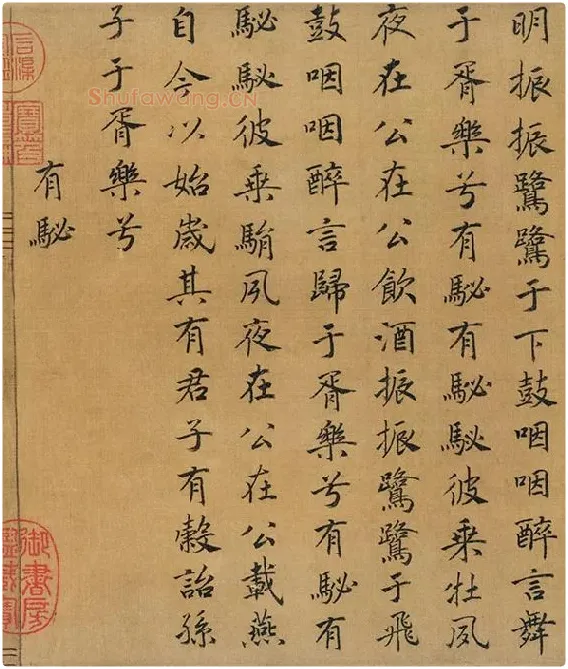 明振振鷺鷺于下鼓咽咽醉言舞
于胥樂兮有駜有駜駜彼乘牡夙
夜在公在公飲酒振振鷺鷺于飛
鼓咽咽醉言歸于胥樂兮有駜有
駜駜彼乘駽夙夜在公在公載燕
自今以始歲其有君子有穀詒孫
子于胥樂兮
有駜
御書房
Shufawang.CN